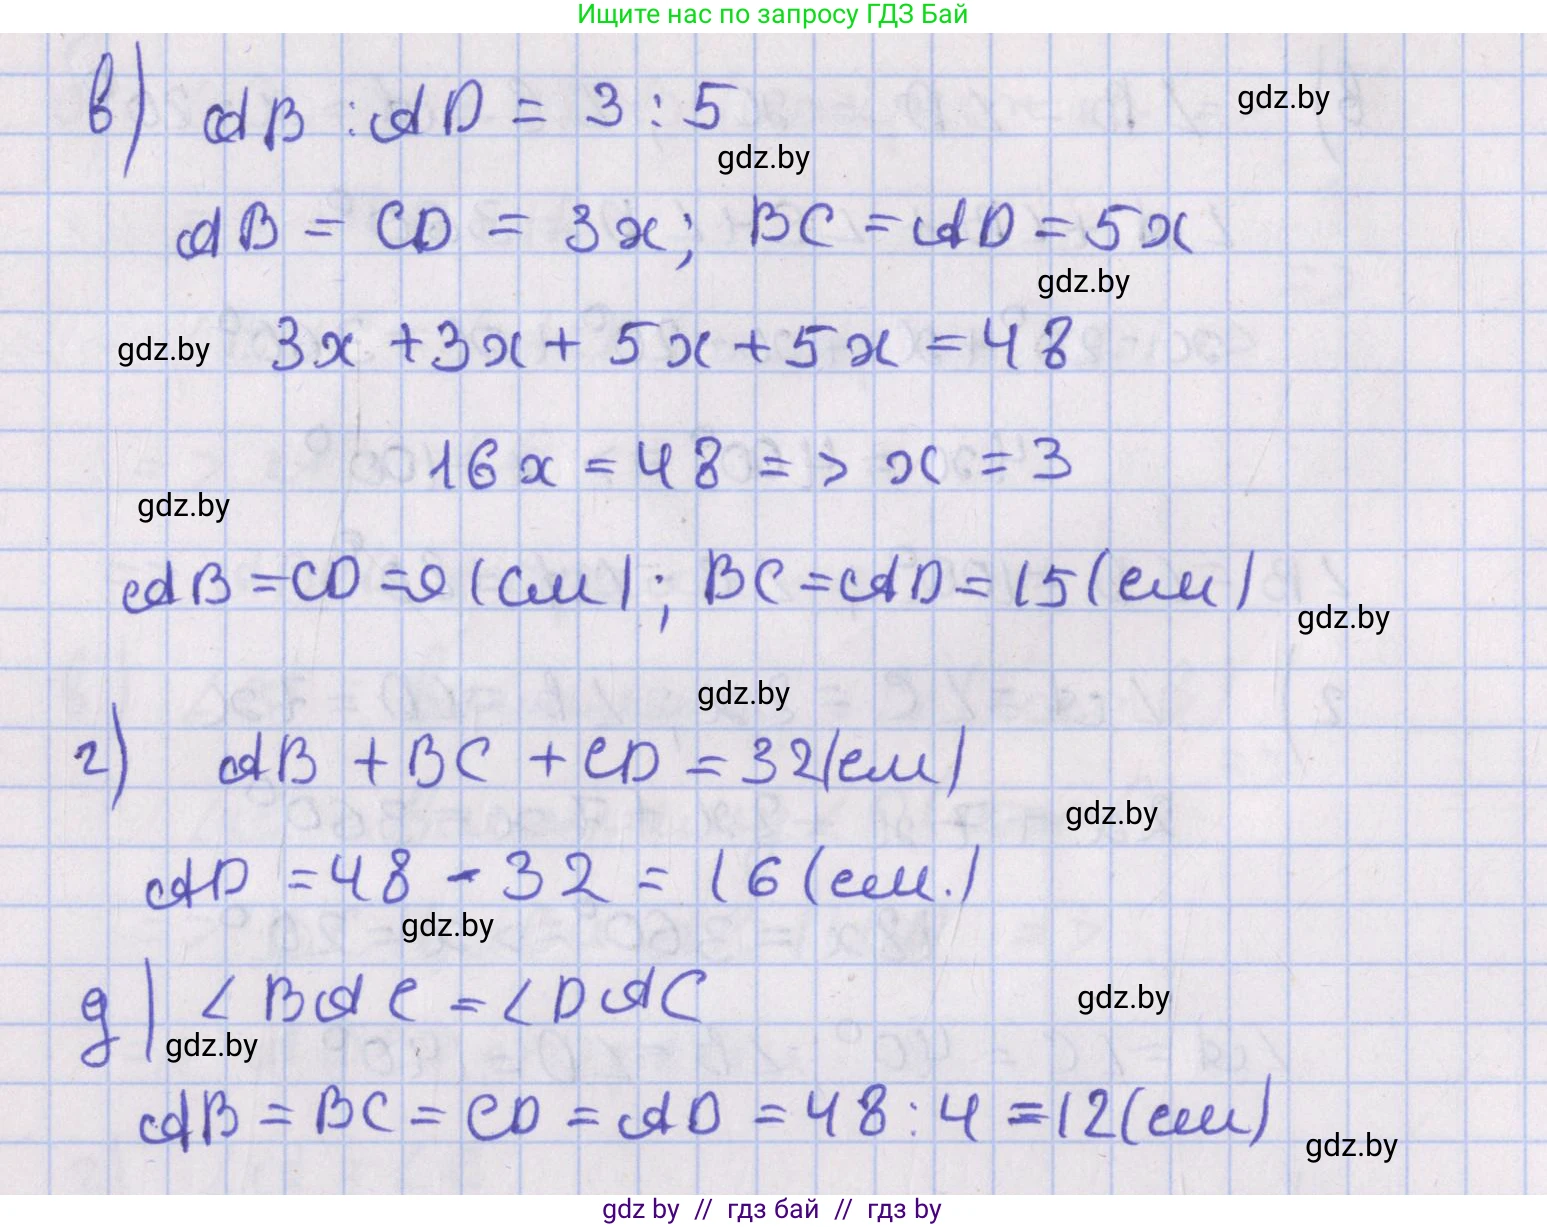 Ищите нас по запросу ГДЗ Бай
в) AB : AD = 3 : 5
gdz.by
gdz.by
AB = CD = 3x; BC = AD = 5x
gdz.by
gdz.by 3x + 3x + 5x + 5x = 48
16x = 48 => x = 3
gdz.by
AB = CD = 9 (см); BC = AD = 15 (см)
gdz.by
gdz.by
г) AB + BC + CD = 32 (см)
gdz.by
AD = 48 - 32 = 16 (см.)
gdz.by
д) ∠BAC = ∠DAC
gdz.by
gdz.by
AB = BC = CD = AD = 48 : 4 = 12 (см)
gdz.by
gdz by // гдз бай // гдз by